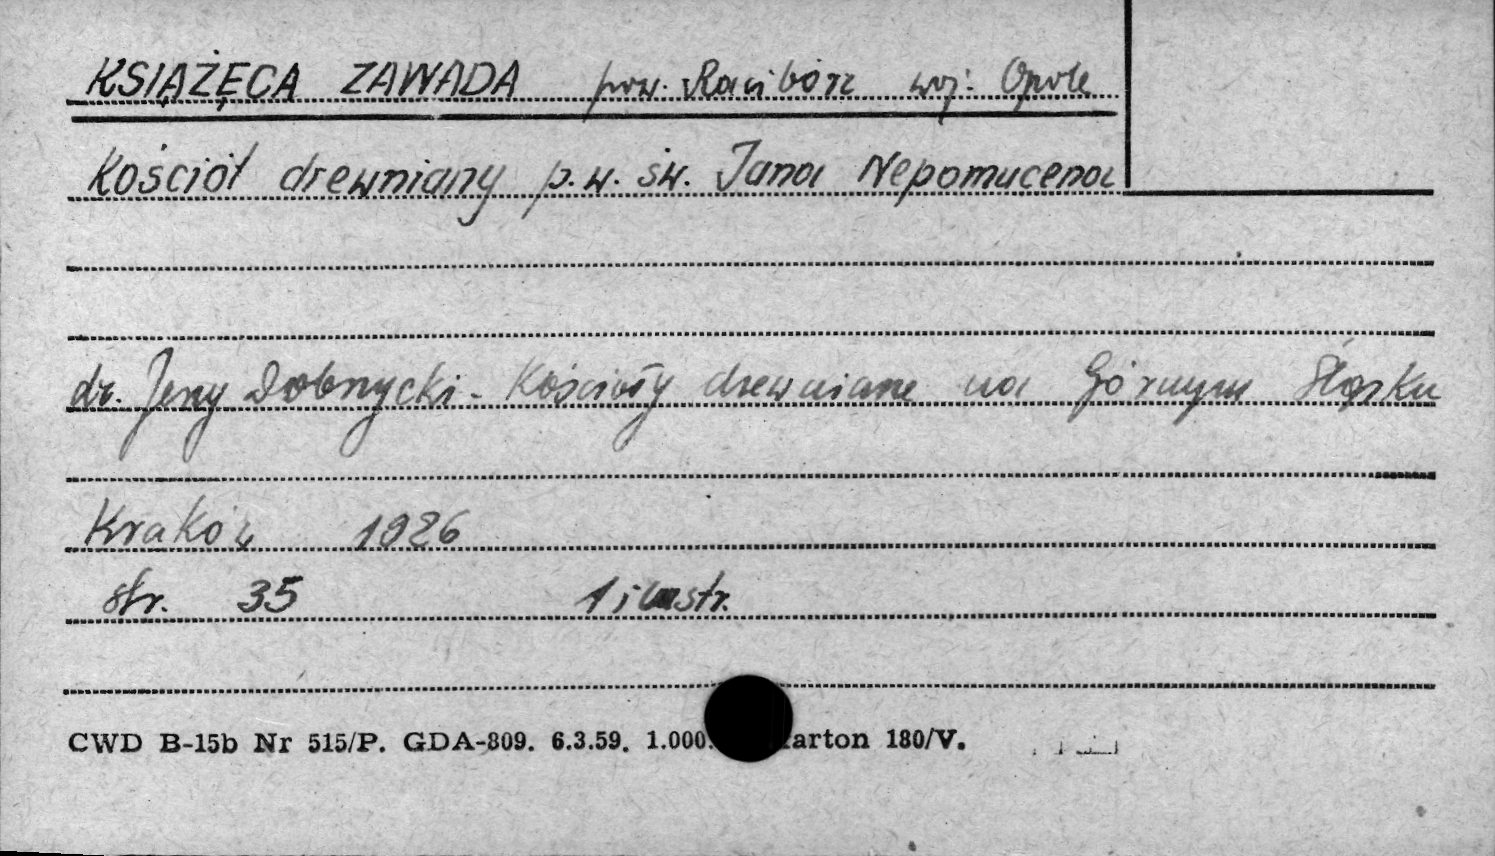 KSIĄŻĘCA ZAWADA pow. Racibórz woj. Opole
Kościół drewniany p.w. św. Jana Nepomucena
dr. Jerzy Dobrzycki - Kościoły drewniane na Górnym Śląsku
Kraków 1926
str. 35 1 ilustr.
CWD B-15b Nr 515/P. GDA-809. 6.3.59. 1.000. arton 180/V.